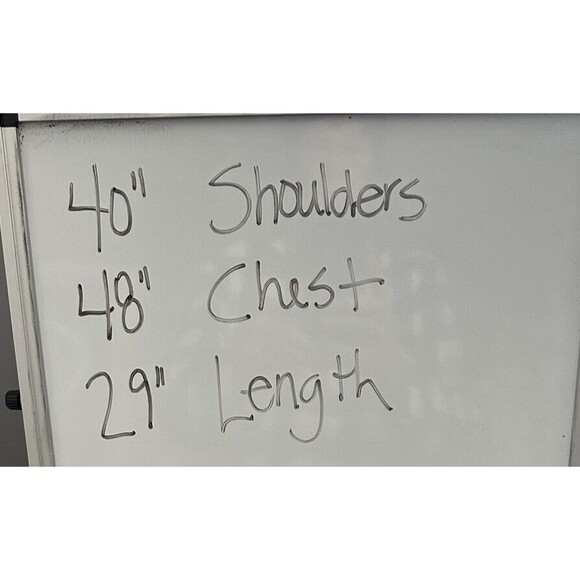 40" Shoulders
48" Chest
29" Length